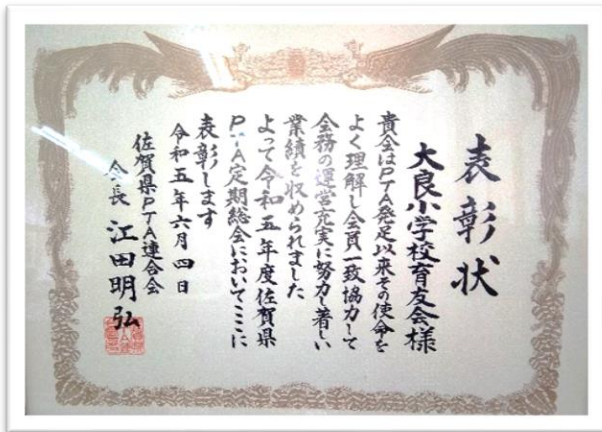 表彰状
大良小学校育友会様
貴会はPTA発足以来その使命を
よく理解し会員一致協力して
会務の運営充実に努力し著しい
業績を収められました
よって令和五年度佐賀県
PTA定期総会においてここに
表彰します
令和五年六月四日
佐賀県PTA連合会
会長 江田明弘